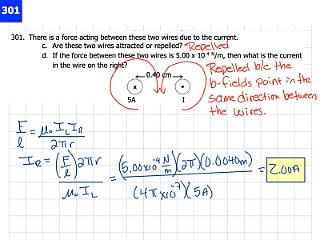 301
301. There is a force acting between these two wires due to the current.
c. Are these two wires attracted or repelled? Repelled
d. If the force between these two wires is 5.00 x 10⁻⁴ N/m, then what is the current
in the wire on the right?
Repelled b/c the
b-fields point in the
same direction between
the wires.
0.40 cm
x
5A I
F/l = μ₀ I_L I_R / 2πr
I_R = (F/l) 2πr / μ₀ I_L = (5.00x10⁻⁴ N/m)(2π)(0.0040m) / (4πx10⁻⁷)(5A) = 2.00A